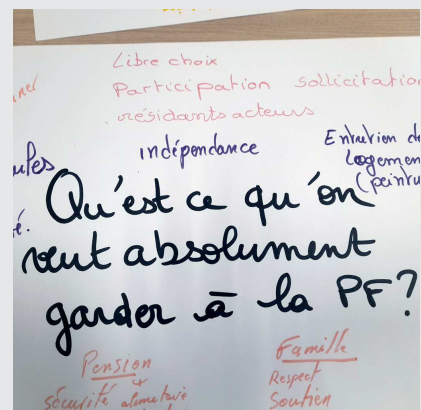 Libre choix
Participation sollicitation
résidants acteurs
indépendance
Entretien
logement
(peintu
Qu'est ce qu'on
veut absolument
garder à la PF?
Pension
Famille
sécurité alimentaire
Respect
Soutien